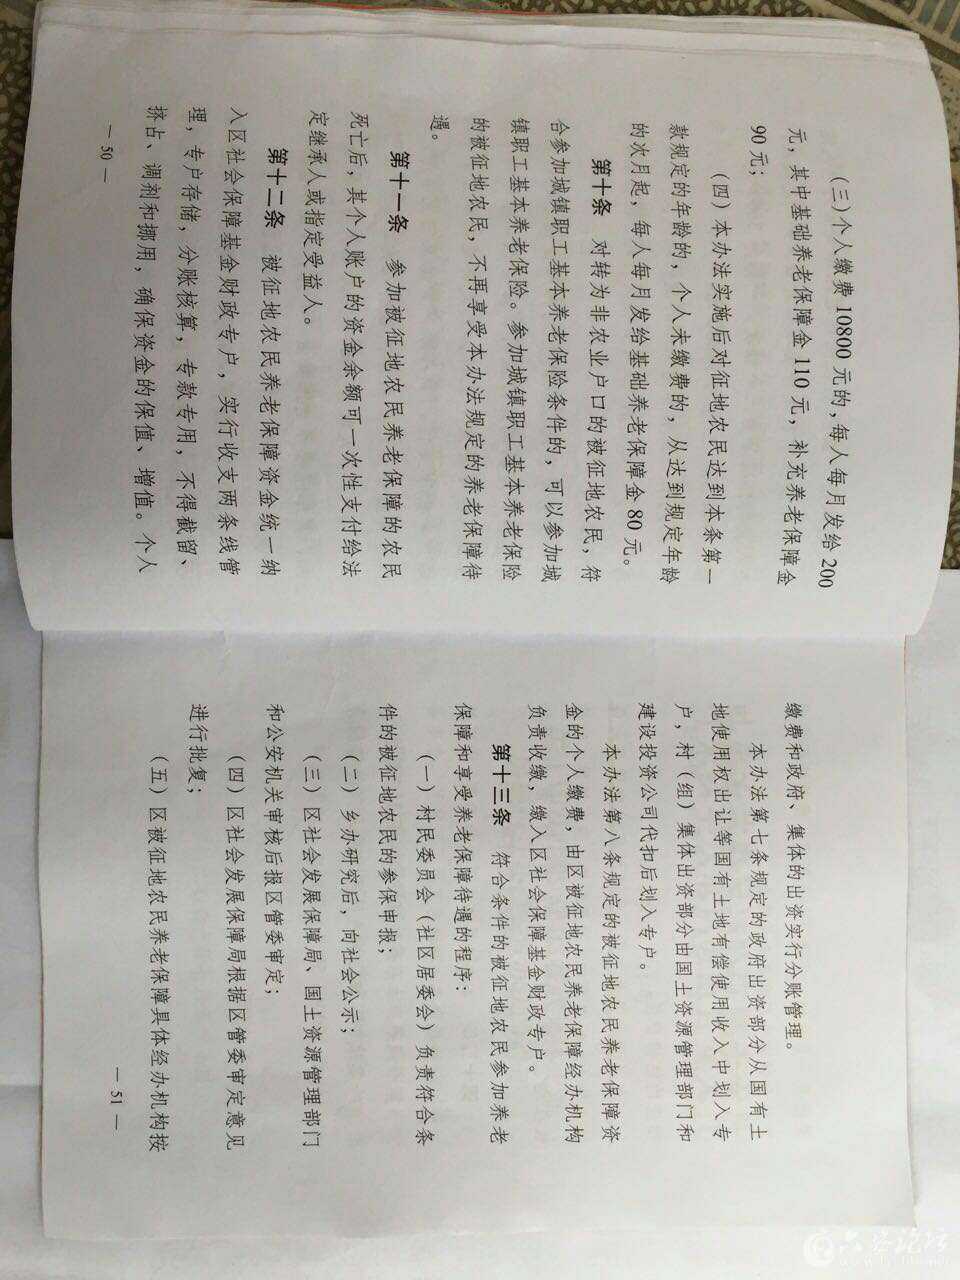 （三）个人缴费 10800 元的，每人每月发给 200
元，其中基础养老保障金 110 元，补充养老保障金
90 元；
（四）本办法实施后对征地农民达到本条第一
款规定的年龄的，个人未缴费的，从达到规定年龄
的次月起，每人每月发给基础养老保障金 80 元。
第十条 对转为非农业户口的被征地农民，符
合参加城镇职工基本养老保险条件的，可以参加城
镇职工基本养老保险。参加城镇职工基本养老保险
的被征地农民，不再享受本办法规定的养老保障待
遇。
第十一条 参加被征地农民养老保障的农民
死亡后，其个人账户的资金余额可一次性支付给法
定继承人或指定受益人。
第十二条 被征地农民养老保障资金统一纳
入区社会保障基金财政专户，实行收支两条线管
理，专户存储，分账核算，专款专用，不得截留、
挤占、调剂和挪用，确保资金的保值、增值。个人
— 50 —
缴费和政府、集体的出资实行分账管理。
本办法第七条规定的政府出资部分从国有土
地使用权出让等国有土地有偿使用收入中划入专
户，村（组）集体出资部分由国土资源管理部门和
建设投资公司代扣后划入专户。
本办法第八条规定的被征地农民养老保障资
金的个人缴费，由区被征地农民养老保障经办机构
负责收缴，缴入区社会保障基金财政专户。
第十三条 符合条件的被征地农民参加养老
保障和享受养老保障待遇的程序：
（一）村民委员会（社区居委会）负责符合条
件的被征地农民的参保申报；
（二）乡办研究后，向社会公示；
（三）区社会发展保障局、国土资源管理部门
和公安机关审核后报区管委审定；
（四）区社会发展保障局根据区管委审定意见
进行批复；
（五）区被征地农民养老保障具体经办机构按
— 51 —